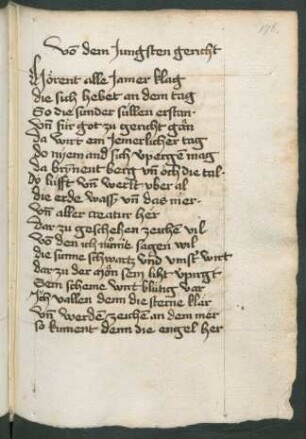 Võ dem Jungsten gericht
Hörent alle Jamer klag
die sich hebet an dem tag
So die sunder sullen erstan
Vñ für got zu gericht gân
da wirt ein Jemerlicher tag
do nyemand sich vperge mag
da brynnent berg vñ och die tal
do lufft vñ verst vber al
die erde wass vñ das mer
vñ aller creatur her
dar zu geschehen zeichē vil
Võ den ich nu sagen wil
die sunne schwartz vñd vinst wirt
dar zu der môn sein liht vpirgt
Sein scheme wirt klütig var
Sich vallen denn die sterne klar
Vñ werdē zeichē an dem mer
so kument denn die engel her